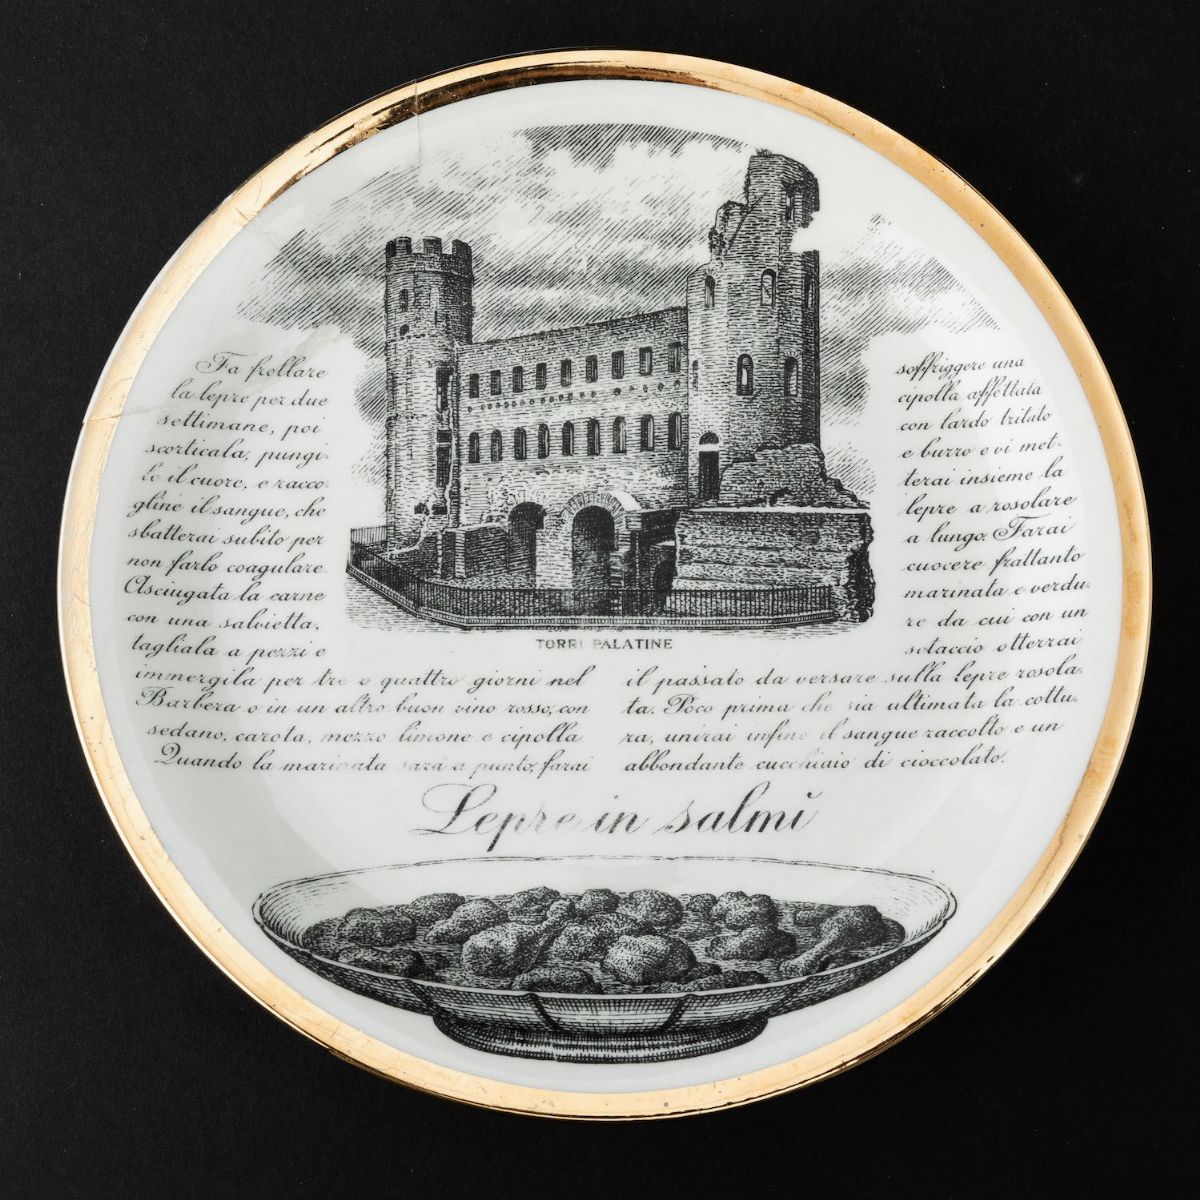 Fa frollare
la lepre per due
settimane, poi
scorticala, pungi-
le il cuore, e racco-
gline il sangue, che
sbatterai subito per
non farlo coagulare.
Asciugata la carne
con una salvietta,
tagliala a pezzi e
immergila per tre o quattro giorni nel
Barbera o in un altro buon vino rosso, con
sedano, carota, mezzo limone e cipolla
Quando la marinata sarà a punto, farai
soffriggere una
cipolla affettata
con lardo tritato
e burro e vi met-
terai insieme la
lepre a rosolare
a lungo. Farai
cuocere frattanto
marinata e verdu-
re da cui con un
setaccio otterrai
il passato da versare sulla lepre rosola-
ta. Poco prima che sia ultimata la cottu-
ra, unirai infine il sangue raccolto e un
abbondante cucchiaio di cioccolato.
TORRI PALATINE
Lepre in salmì